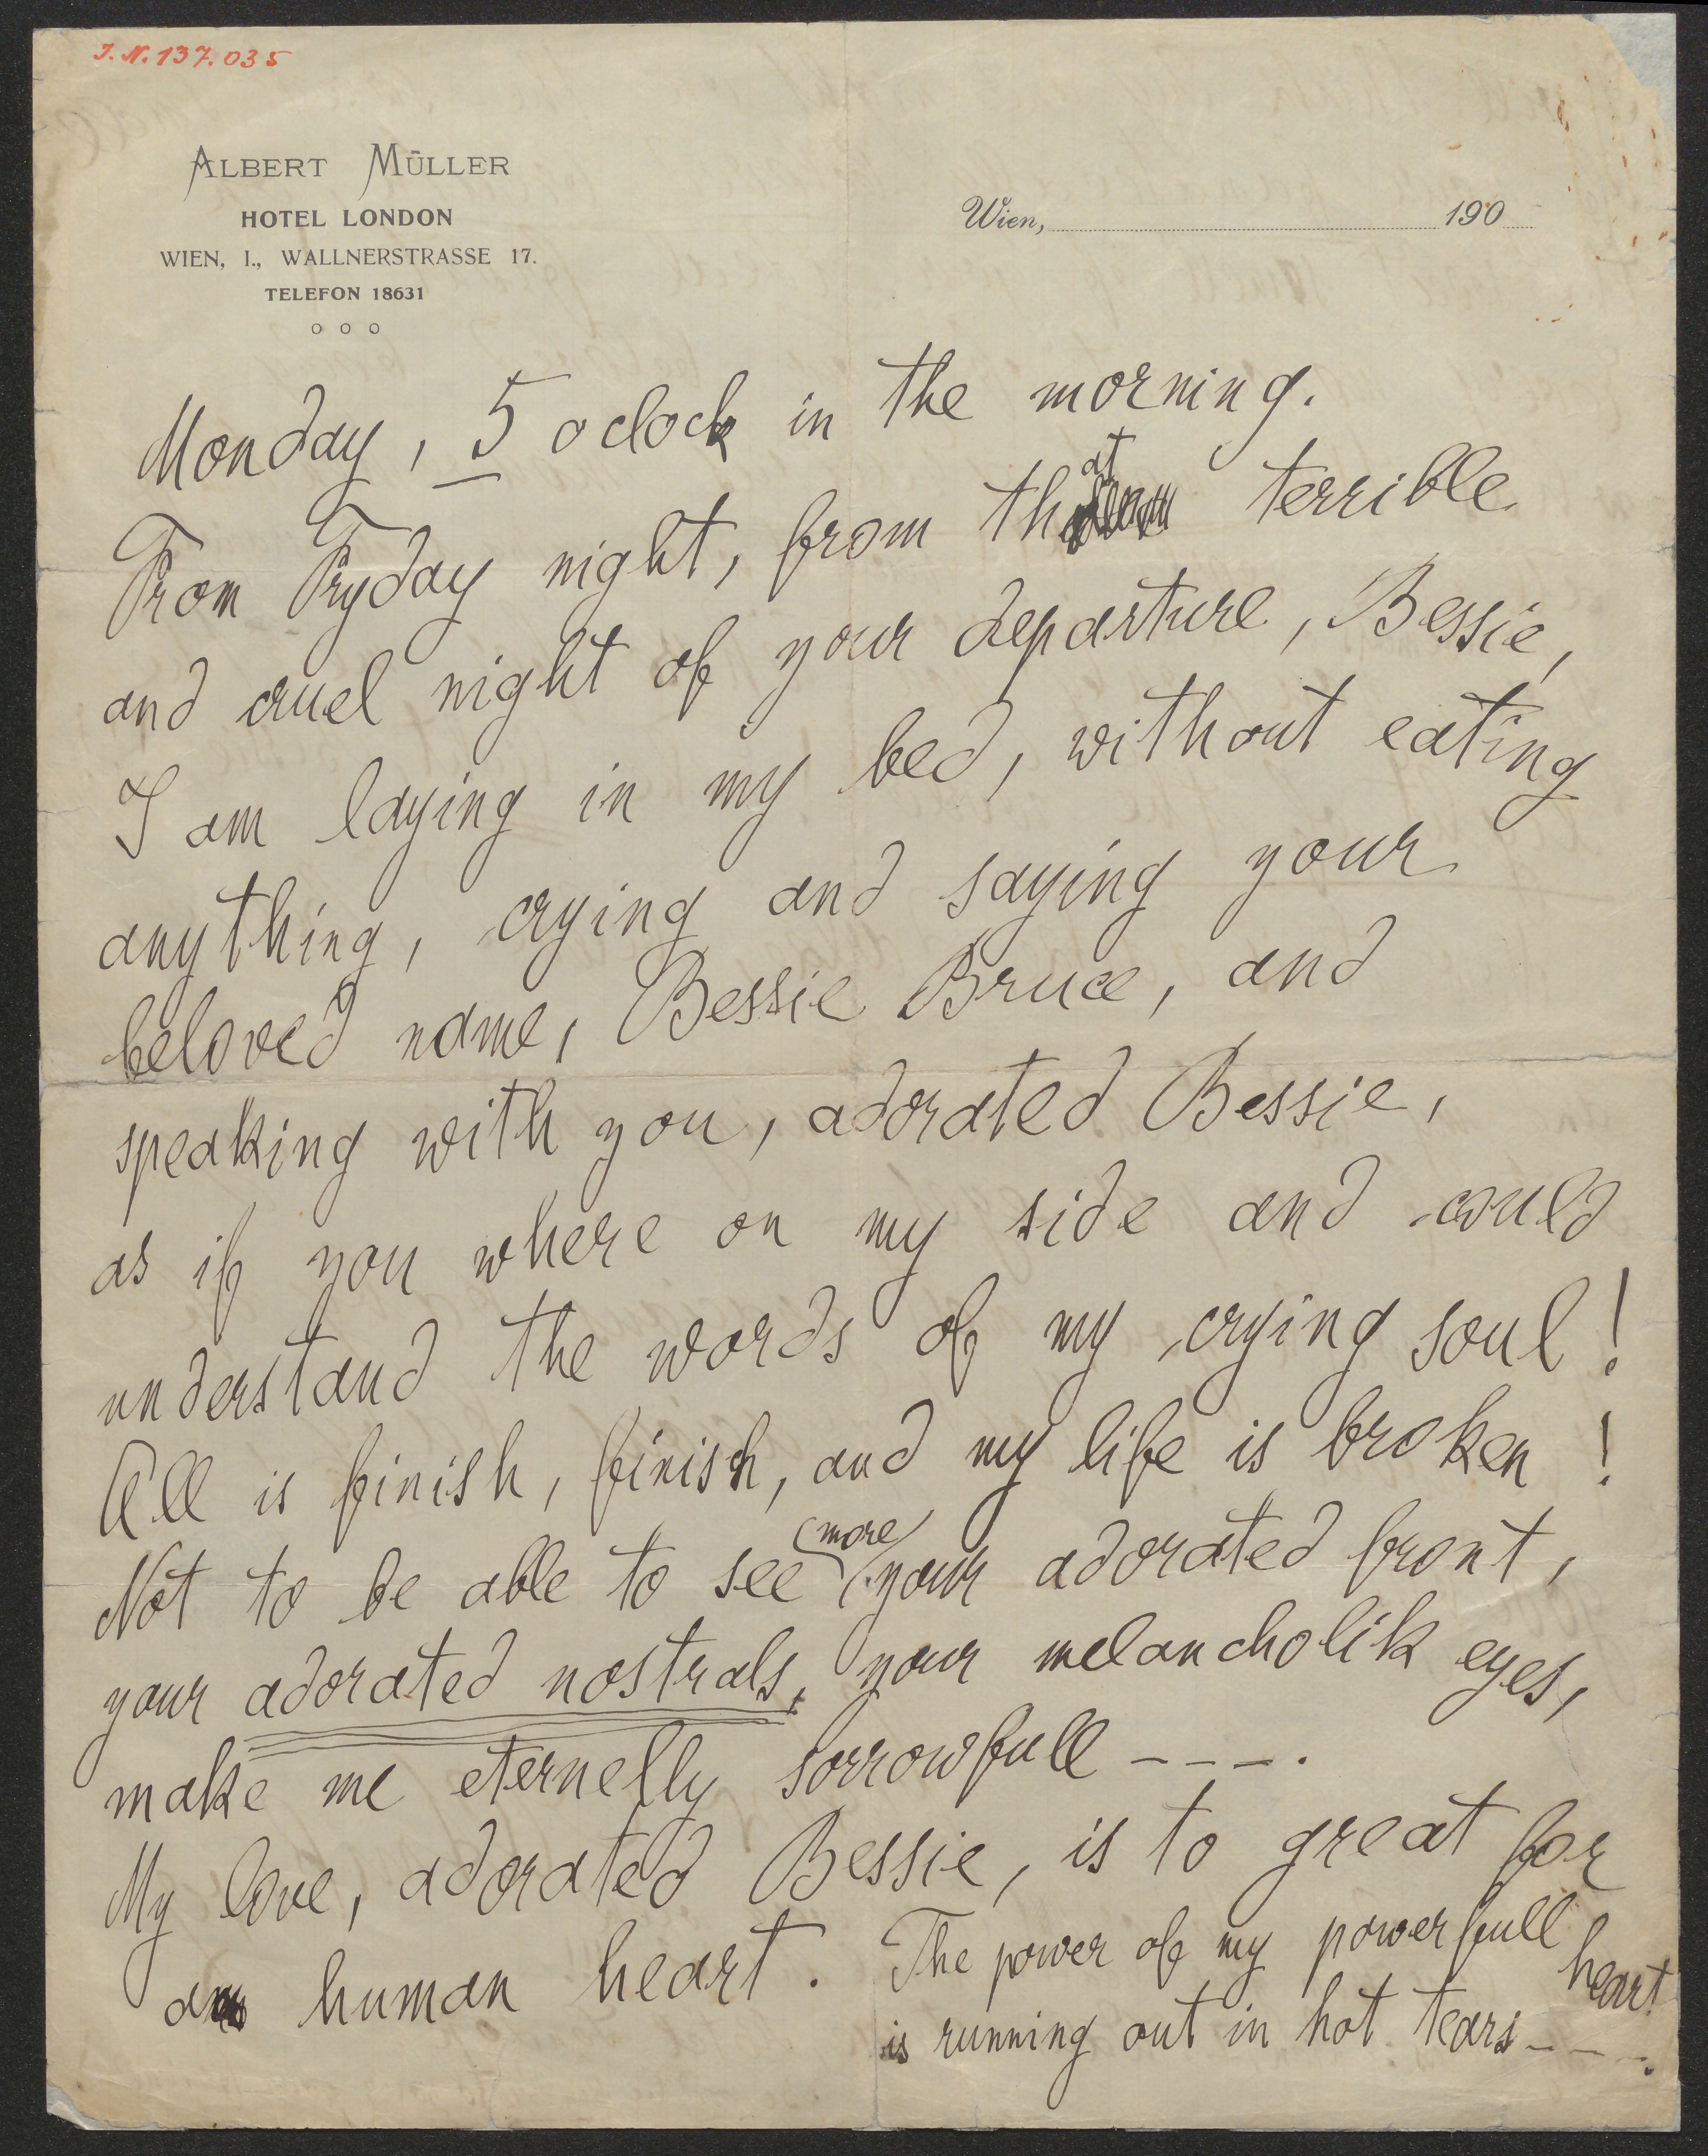 J.N. 137.035
ALBERT MÜLLER
HOTEL LONDON
WIEN, I., WALLNERSTRASSE 17.
TELEFON 18631
o o o
Wien, 190
Monday, 5 o clock in the morning.
From Fryday night, from that terrible
and cruel night of your departure, Bessie,
I am laying in my bed, without eating
anything, crying and saying your
beloved name, Bessie Bruce, and
speaking with you, adorated Bessie,
as if you where on my side and could
understand the words of my crying soul!
All is finish, finish, and my life is broken!
Not to be able to see more your adorated front,
your adorated nostrals, your melancholik eyes,
make me eternelly sorrowfull ----.
My love, adorated Bessie, is to great for
a human heart. The power of my powerfull heart
is running out in hot tears ---.